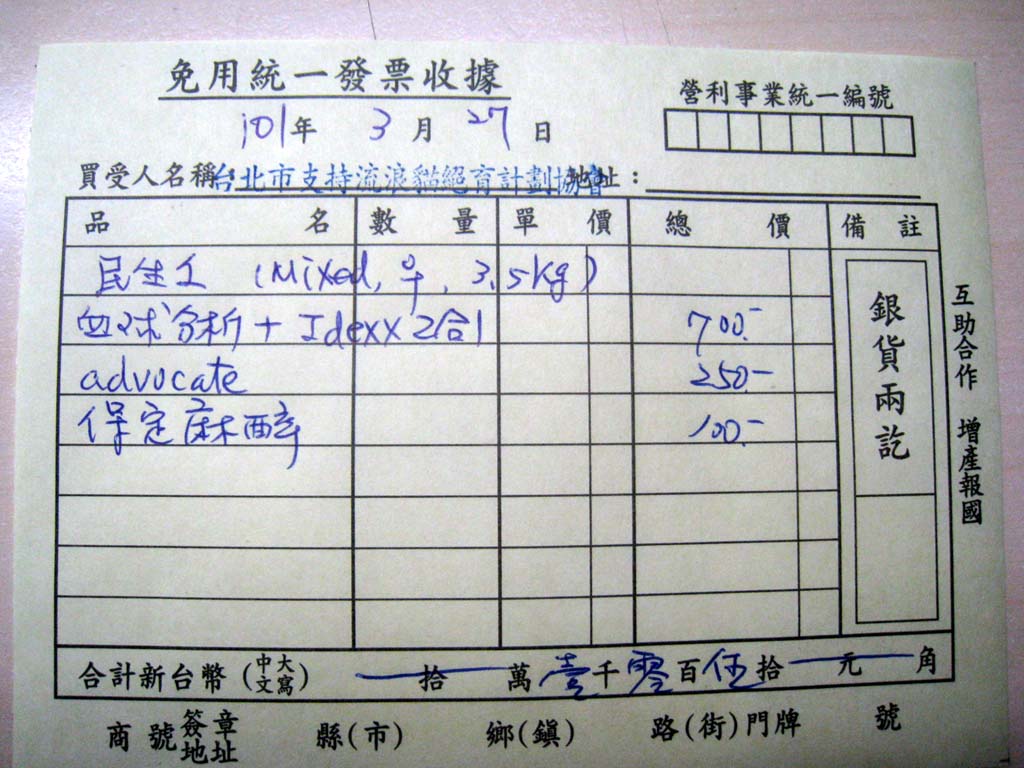 免用統一發票收據
營利事業統一編號
101年 3月 27日
買受人名稱：台北市支持流浪貓絕育計劃協會 地址：
品名 數量 單價 總價 備註
民生工 (Mixed, ♀, 3.5kg)
血球分析 + Idexx 2合1 700.-
advocate 250.-
保定麻醉 100.-
銀貨兩訖
互助合作 增產報國
合計新台幣(中文大寫) 拾 萬 壹 千 零 百 伍 拾 元 角
商號簽章地址 縣(市) 鄉(鎮) 路(街)門牌 號